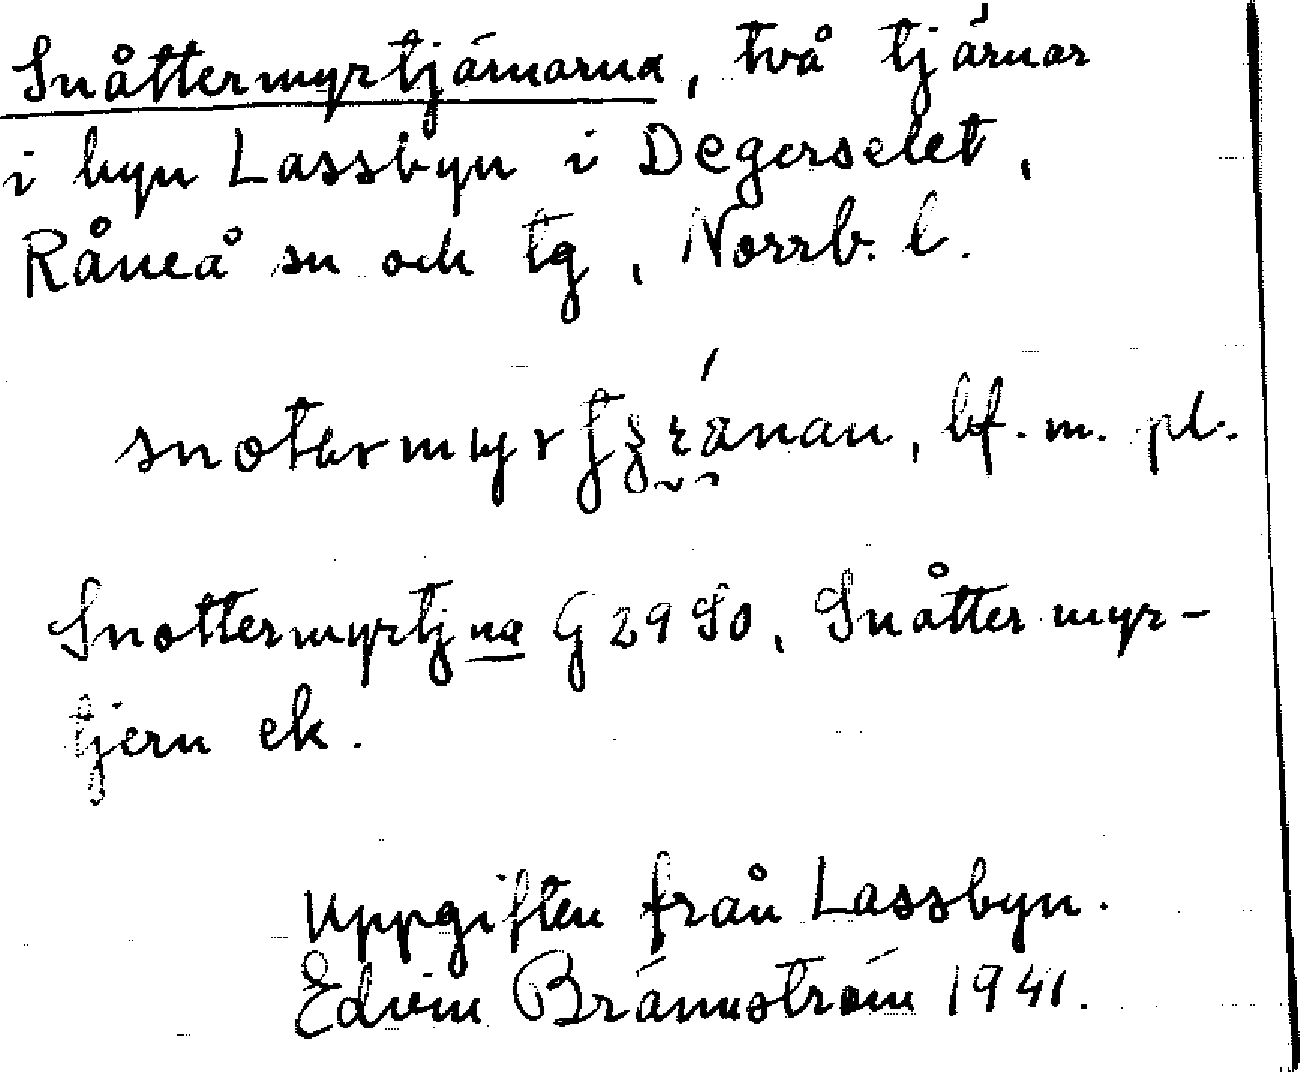 Snåttermyrtjärnarna, två tjärnar
i byn Lassbyn i Degerselet,
Råneå sn och tg, Norrb. l.
bf. m. pl.
Snottermyrtjna G 29 SO, Snåttermyr-
tjern ek.
Uppgiften från Lassbyn.
Edvin Brännström 1941.